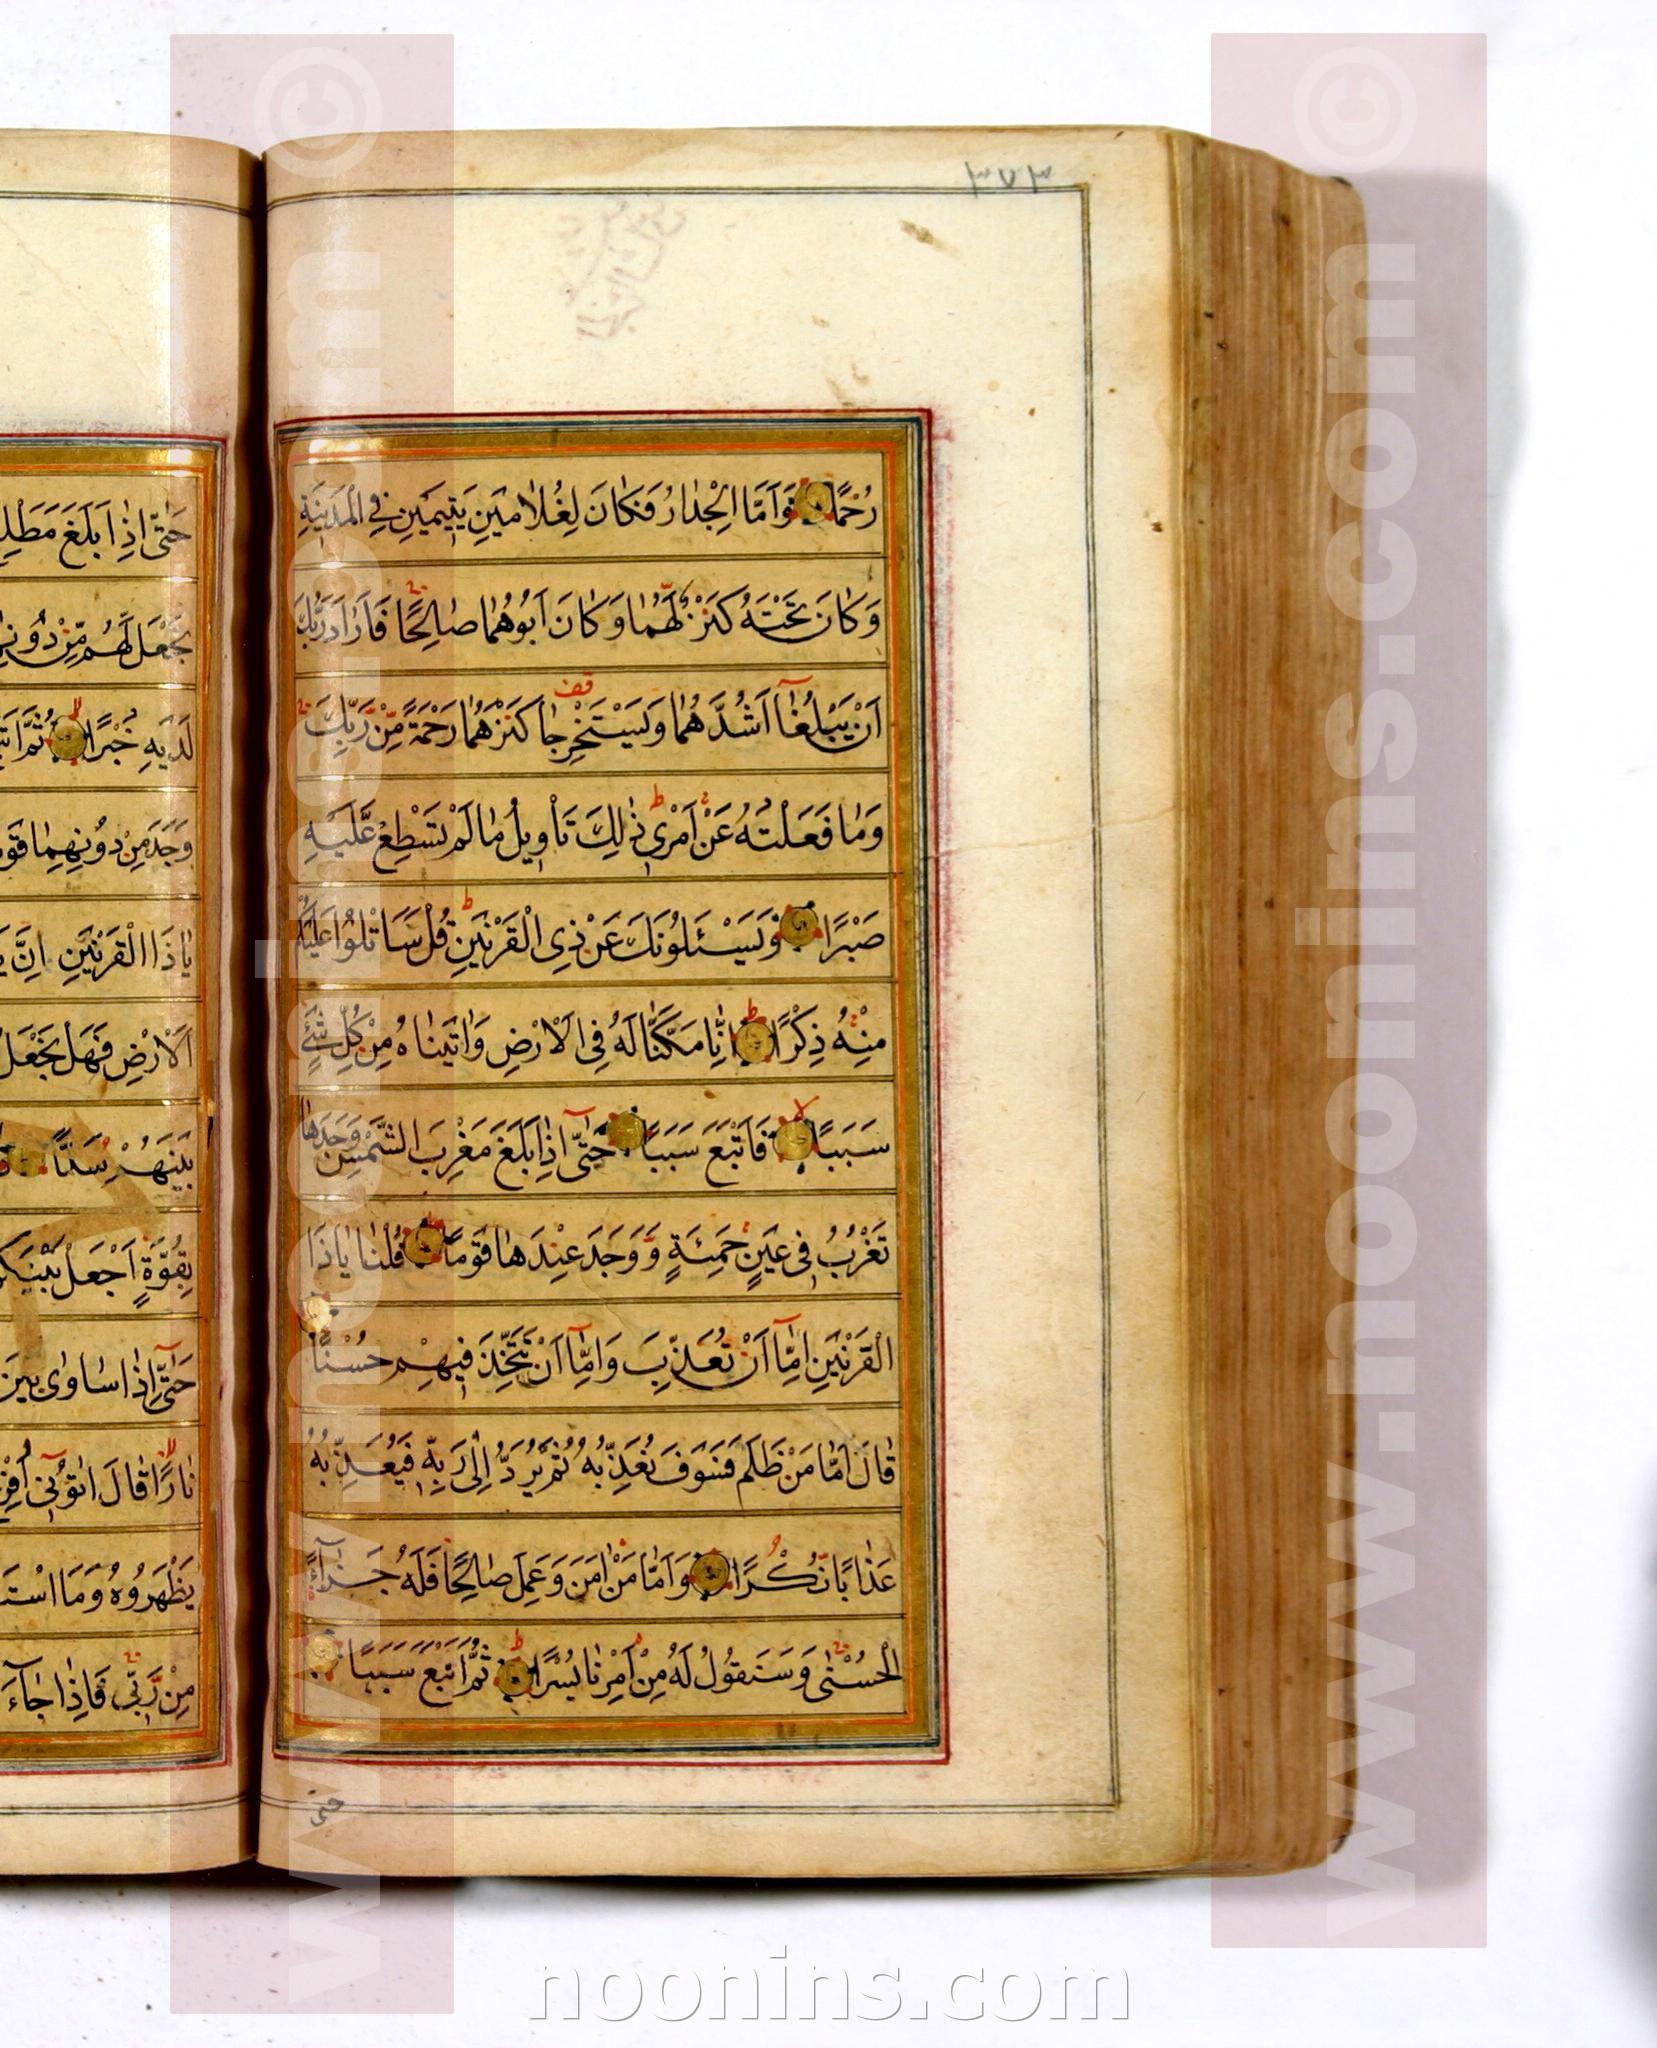 ٣٧٣
رُحْمًا وَاَمَّا الْجِدَارُ فَكَانَ لِغُلَامَيْنِ يَتِيمَيْنِ فِى الْمَدِينَةِ
وَكَانَ تَحْتَهُ كَنْزٌ لَهُمَا وَكَانَ اَبُوهُمَا صَالِحًا فَاَرَادَ رَبُّكَ
اَنْ يَبْلُغَا اَشُدَّهُمَا وَيَسْتَخْرِجَا كَنْزَهُمَا رَحْمَةً مِّنْ رَبِّكَ
وَمَا فَعَلْتُهُ عَنْ اَمْرِى ذٰلِكَ تَأْوِيلُ مَا لَمْ تَسْطِعْ عَلَيْهِ
صَبْرًا وَيَسْئَلُونَكَ عَنْ ذِى الْقَرْنَيْنِ قُلْ سَاَتْلُوا عَلَيْكُمْ
مِنْهُ ذِكْرًا اِنَّا مَكَّنَّا لَهُ فِى الْاَرْضِ وَاٰتَيْنَاهُ مِنْ كُلِّ شَىْءٍ
سَبَبًا فَاَتْبَعَ سَبَبًا حَتّٰى اِذَا بَلَغَ مَغْرِبَ الشَّمْسِ وَجَدَهَا
تَغْرُبُ فِى عَيْنٍ حَمِئَةٍ وَوَجَدَ عِنْدَهَا قَوْمًا قُلْنَا يَاذَا
الْقَرْنَيْنِ اِمَّا اَنْ تُعَذِّبَ وَاِمَّا اَنْ تَتَّخِذَ فِيهِمْ حُسْنًا
قَالَ اَمَّا مَنْ ظَلَمَ فَسَوْفَ نُعَذِّبُهُ ثُمَّ يُرَدُّ اِلٰى رَبِّهِ فَيُعَذِّبُهُ
عَذَابًا نُّكْرًا وَاَمَّا مَنْ اٰمَنَ وَعَمِلَ صَالِحًا فَلَهُ جَزَآءً
الْحُسْنٰى وَسَنَقُولُ لَهُ مِنْ اَمْرِنَا يُسْرًا ثُمَّ اَتْبَعَ سَبَبًا
حتى
حَتّٰى اِذَا بَلَغَ مَطْلِ
نَجْعَلْ لَّهُمْ مِّنْ دُونِ
لَدَيْهِ خُبْرًا ثُمَّ
وَجَدَ مِنْ دُونِهِمَا
يَاذَا الْقَرْنَيْنِ اِنَّ
الْاَرْضِ فَهَلْ نَجْعَلُ
بَيْنَهُمْ سَدًّا
بِقُوَّةٍ اَجْعَلْ
حَتّٰى اِذَا سَاوٰى بَيْنَ
نَارًا قَالَ اٰتُونِى
يَظْهَرُوهُ وَمَا
مِنْ رَبِّى فَاِذَا جَآءَ
© www.noonins.com
© www.noonins.com
noonins.com